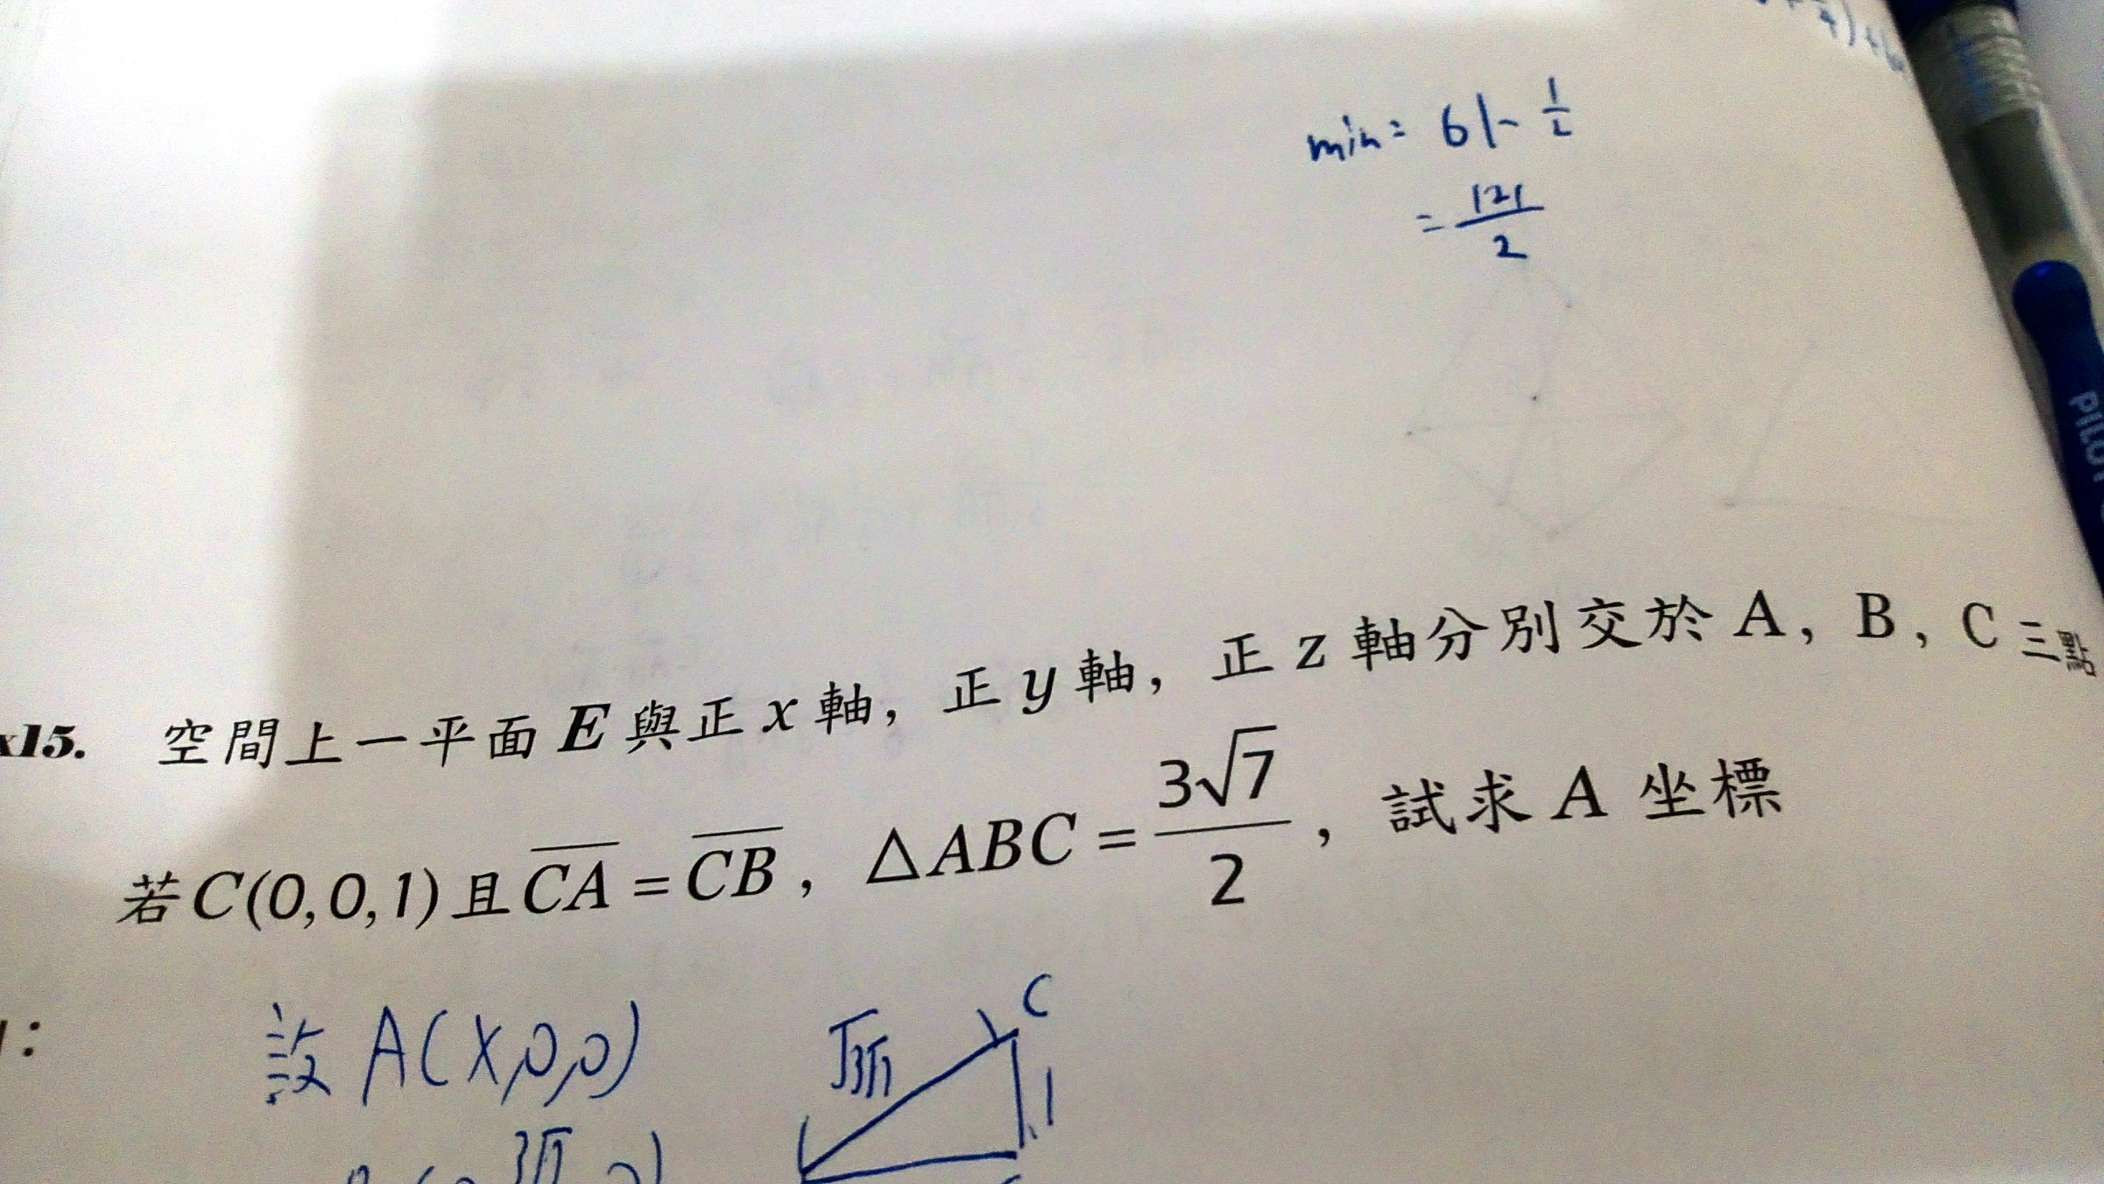 min = 61 - 1/2
= 121/2
PILOT
x15. 空間上一平面 E 與正 x 軸, 正 y 軸, 正 z 軸分別交於 A, B, C 三點
若 C(0,0,1) 且 \overline{CA} = \overline{CB}, △ABC = \frac{3\sqrt{7}}{2}, 試求 A 坐標
:
設 A(x,0,0)
C
1